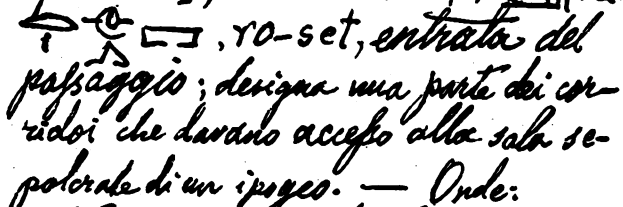 , ro-set, entrata del
passaggio; designa una parte dei cor-
ridoi che davano accesso alla sala se-
polcrale di un ipogeo. — Onde: